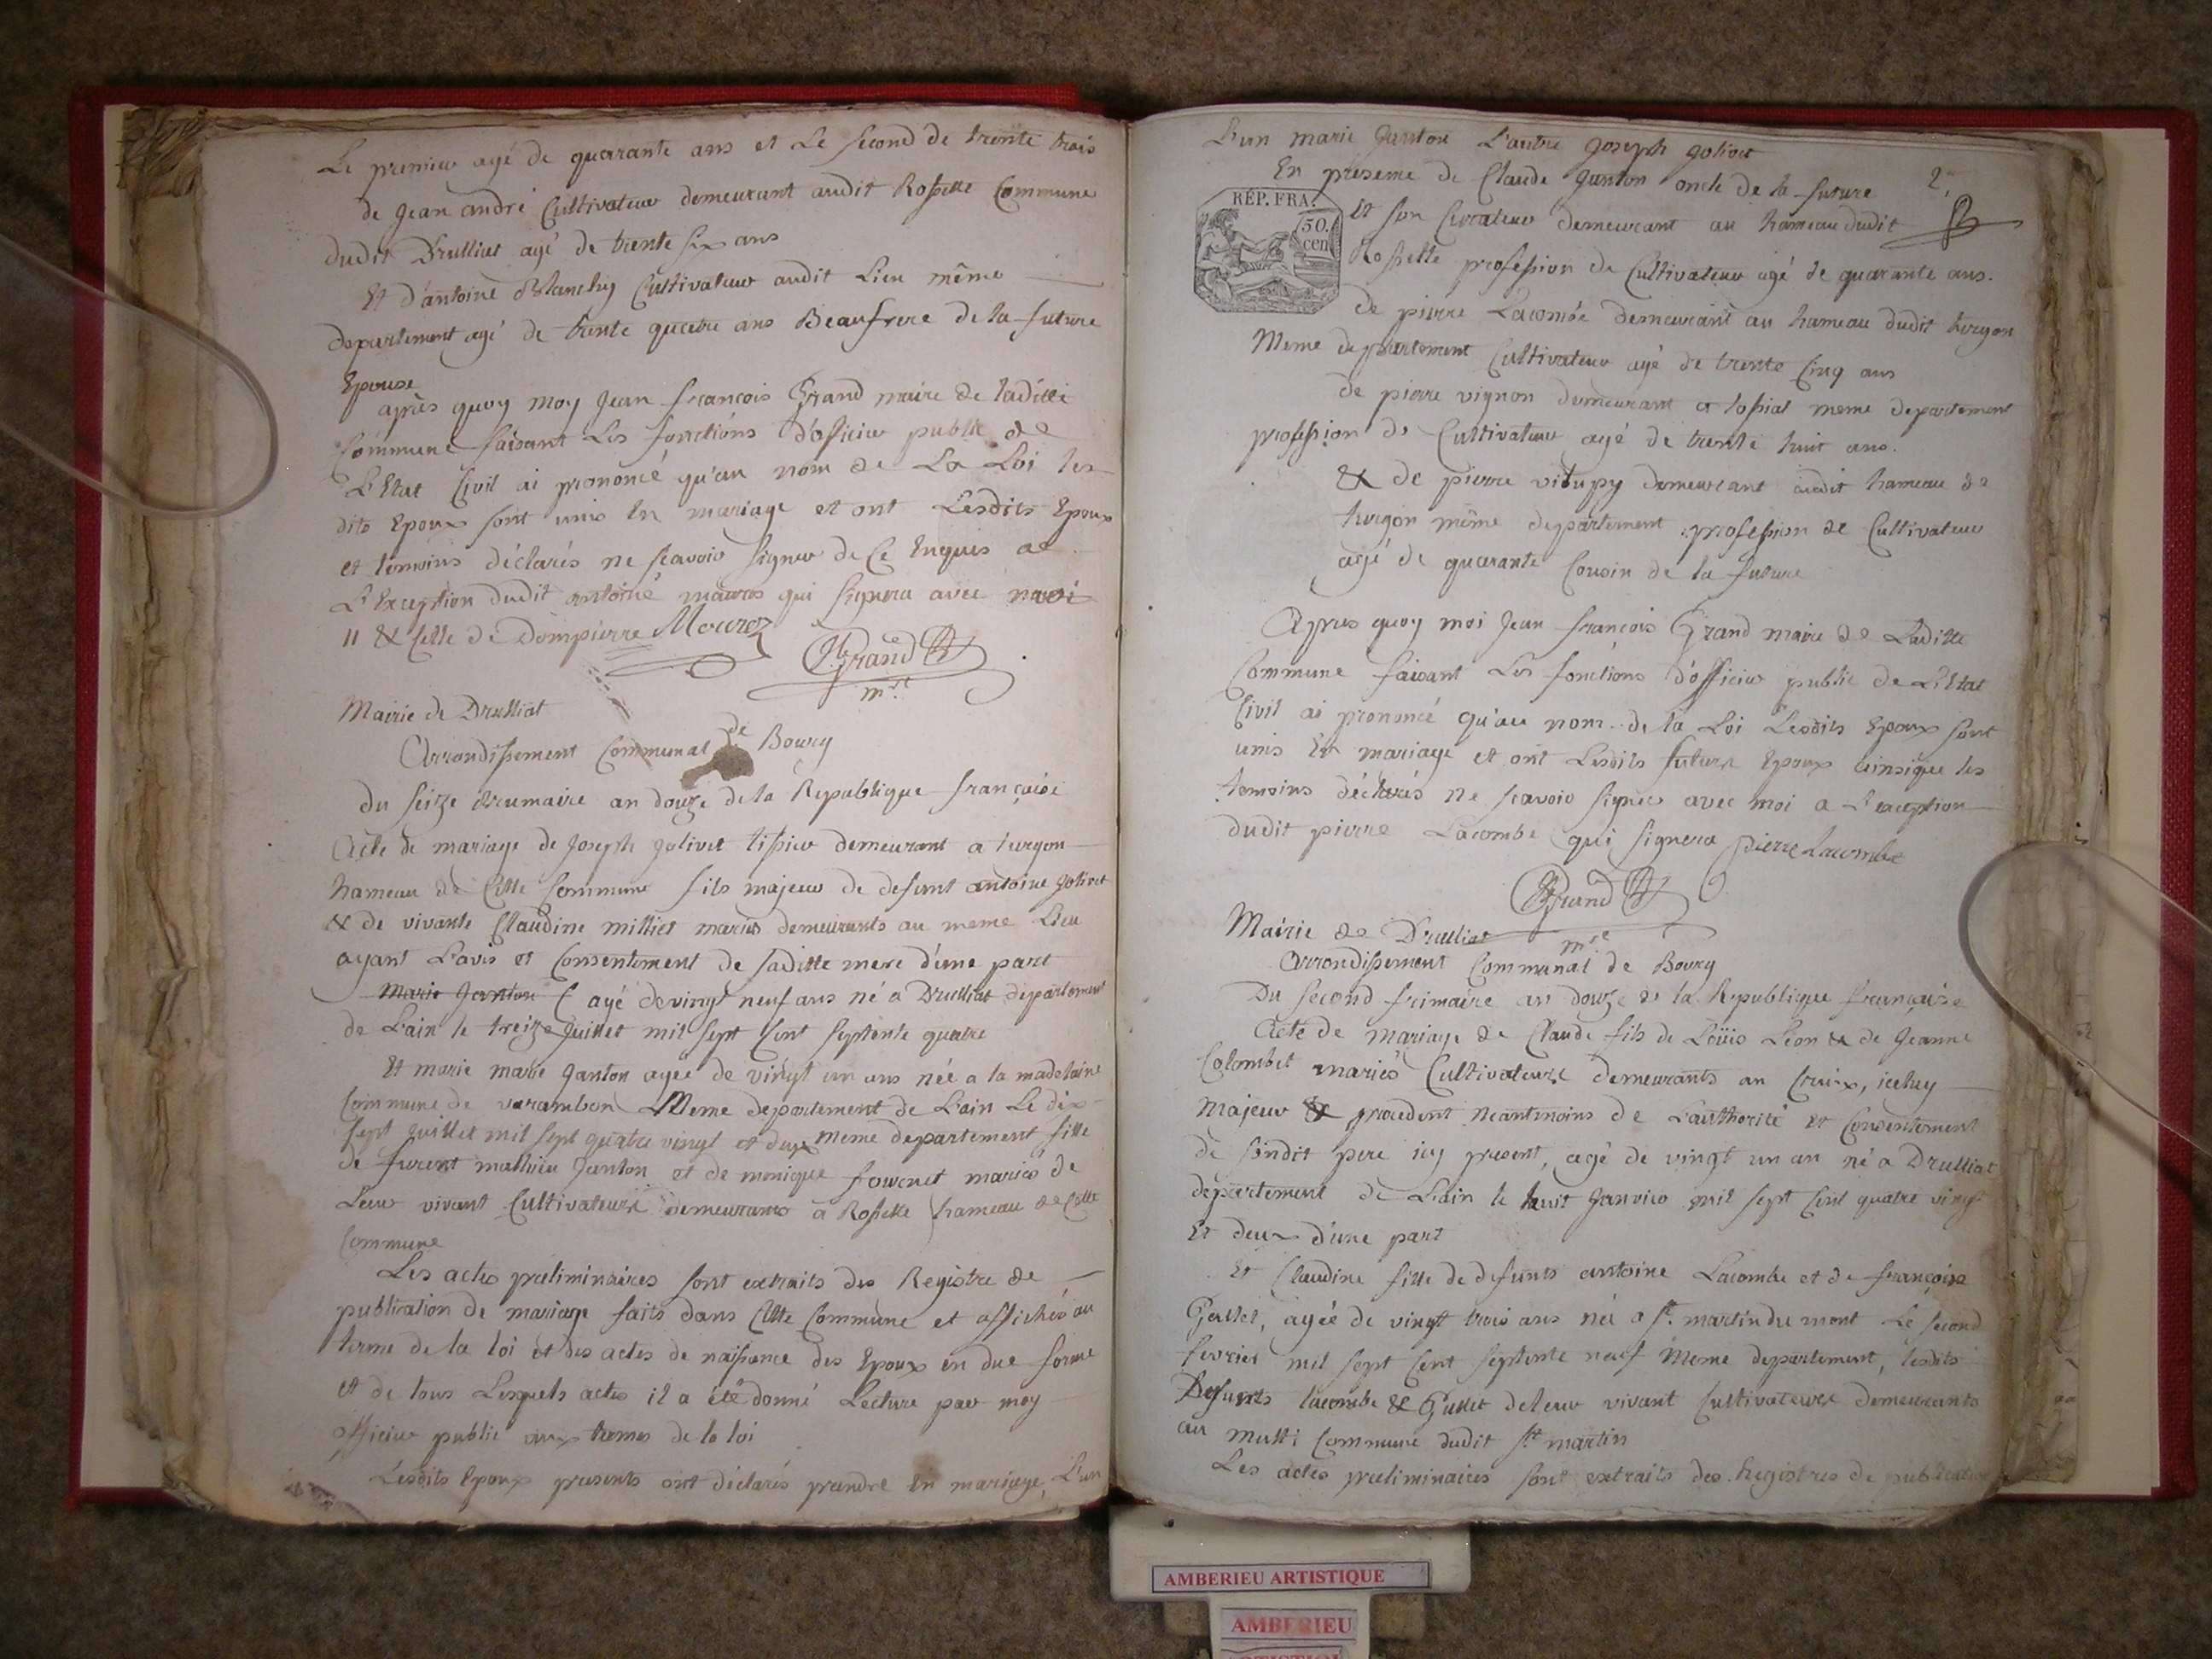 Le premier agé de quarante ans et Le second de trente trois
de Jean andré Cultivateur demeurant audit Rossette Commune
dudit Drulliat agé de trente six ans
Et d'antoine Blanchy Cultivateur audit Lieu même
departement agé de trente quatre ans Beaufrere de la future
Epouse
après quoy moy Jean francois Grand maire de laditte
Commune faisant les fonctions d'officier public de
L'Etat Civil ai prononcé qu'au nom de La Loi les
dits Epoux sont unis en mariage et ont Lesdits Epoux
et temoins déclarés ne scavoir signer de Ce Enquis a
L'Exception dudit antoine mauros qui signera avec moi
11 & celle de Dompierre Mouroz
Grand
m.re
Mairie de Drulliat
Arrondissement Communal de Bourg
du seize Brumaire an douze de la Republique française
Acte de mariage de Joseph Jolivet tissier demeurant a turgon
hameau de Cette Commune fils majeur de defunt antoine Jolivet
& de vivante Claudine milliet mariés demeurants au meme Lieu
ayant L'avis et Consentement de saditte mere d'une part
Marie Janton agé de vingt neuf ans né a Drulliat departement
de L'ain le treize Juillet mil sept Cent septente quatre
Et marie marie Janton agée de vingt un ans née a la madelaine
Commune de varambon Meme departement de L'ain Le dix
sept Juillet mil sept quatre vingt et deux meme departement fille
de furent mathieu Janton et de monique fournet mariés de
Leur vivant Cultivateurs demeurants a Rossette hameau de Cette
Commune
Les actes préliminaires sont extraits des Registre de
publication de mariage faits dans Cette Commune et affichés au
terme de la loi et des actes de naissance des Epoux en due forme
et de tous Lesquels actes il a été donné Lecture par moy
officier public aux termes de la loi
Lesdits Epoux presents ont déclarés prendre En mariage, L'un
L'un marie Janton L'autre Joseph Jolivet
En présence de Claude Janton oncle de la future
2.
RÉP. FRA.
50. cen
Et son Curateur demeurant au hameau dudit
Rossette profession de Cultivateur agé de quarante ans.
de pierre Lacombe demeurant au hameau dudit turgon
Meme departement Cultivateur agé de trente Cinq ans
de pierre vignon demeurant a tossiat meme departement
profession de Cultivateur agé de trente huit ans.
& de pierre vitupy demeurant audit hameau de
turgon même departement profession de Cultivateur
agé de quarante Cousin de la future
Après quoy moi Jean françois Grand maire de Laditte
Commune faisant Les fonctions d'officier public de L'Etat
Civil ai prononcé qu'au nom de la Loi Lesdits Epoux sont
unis En mariage et ont Lesdits futurs Epoux ainsique les
temoins déclarés ne scavoir signer avec moi a L'exception
dudit pierre Lacombe qui signera pierre Lacombe
Grand
m.re
Mairie de Drulliat
Arrondissement Communal de Bourg
Du second frimaire an douze de la Republique française
Acte de mariage de Claude fils de Loüis Léon & de Jeanne
Colombet mariés Cultivateurs demeurants au Craix, icelluy
Majeur & procedent Neantmoins de L'authorité et Consentement
de sondit pere icy present, agé de vingt un an né a Drulliat
departement de L'ain le huit Janvier mil sept Cent quatre vingt
Et deux d'une part
Et Claudine fille de defunts antoine Lacombe et de françoise
Gullet, agée de vingt trois ans née a St. martin du mont Le second
fevrier mil sept Cent septente neuf Meme departement, lesdits
Defunts lacombe & Gullet de leur vivant Cultivateurs demeurants
au multi Commune dudit St martin
Les actes préliminaires sont extraits des Registres de publication
AMBERIEU ARTISTIQUE
AMBERIEU
ARTISTIQUE